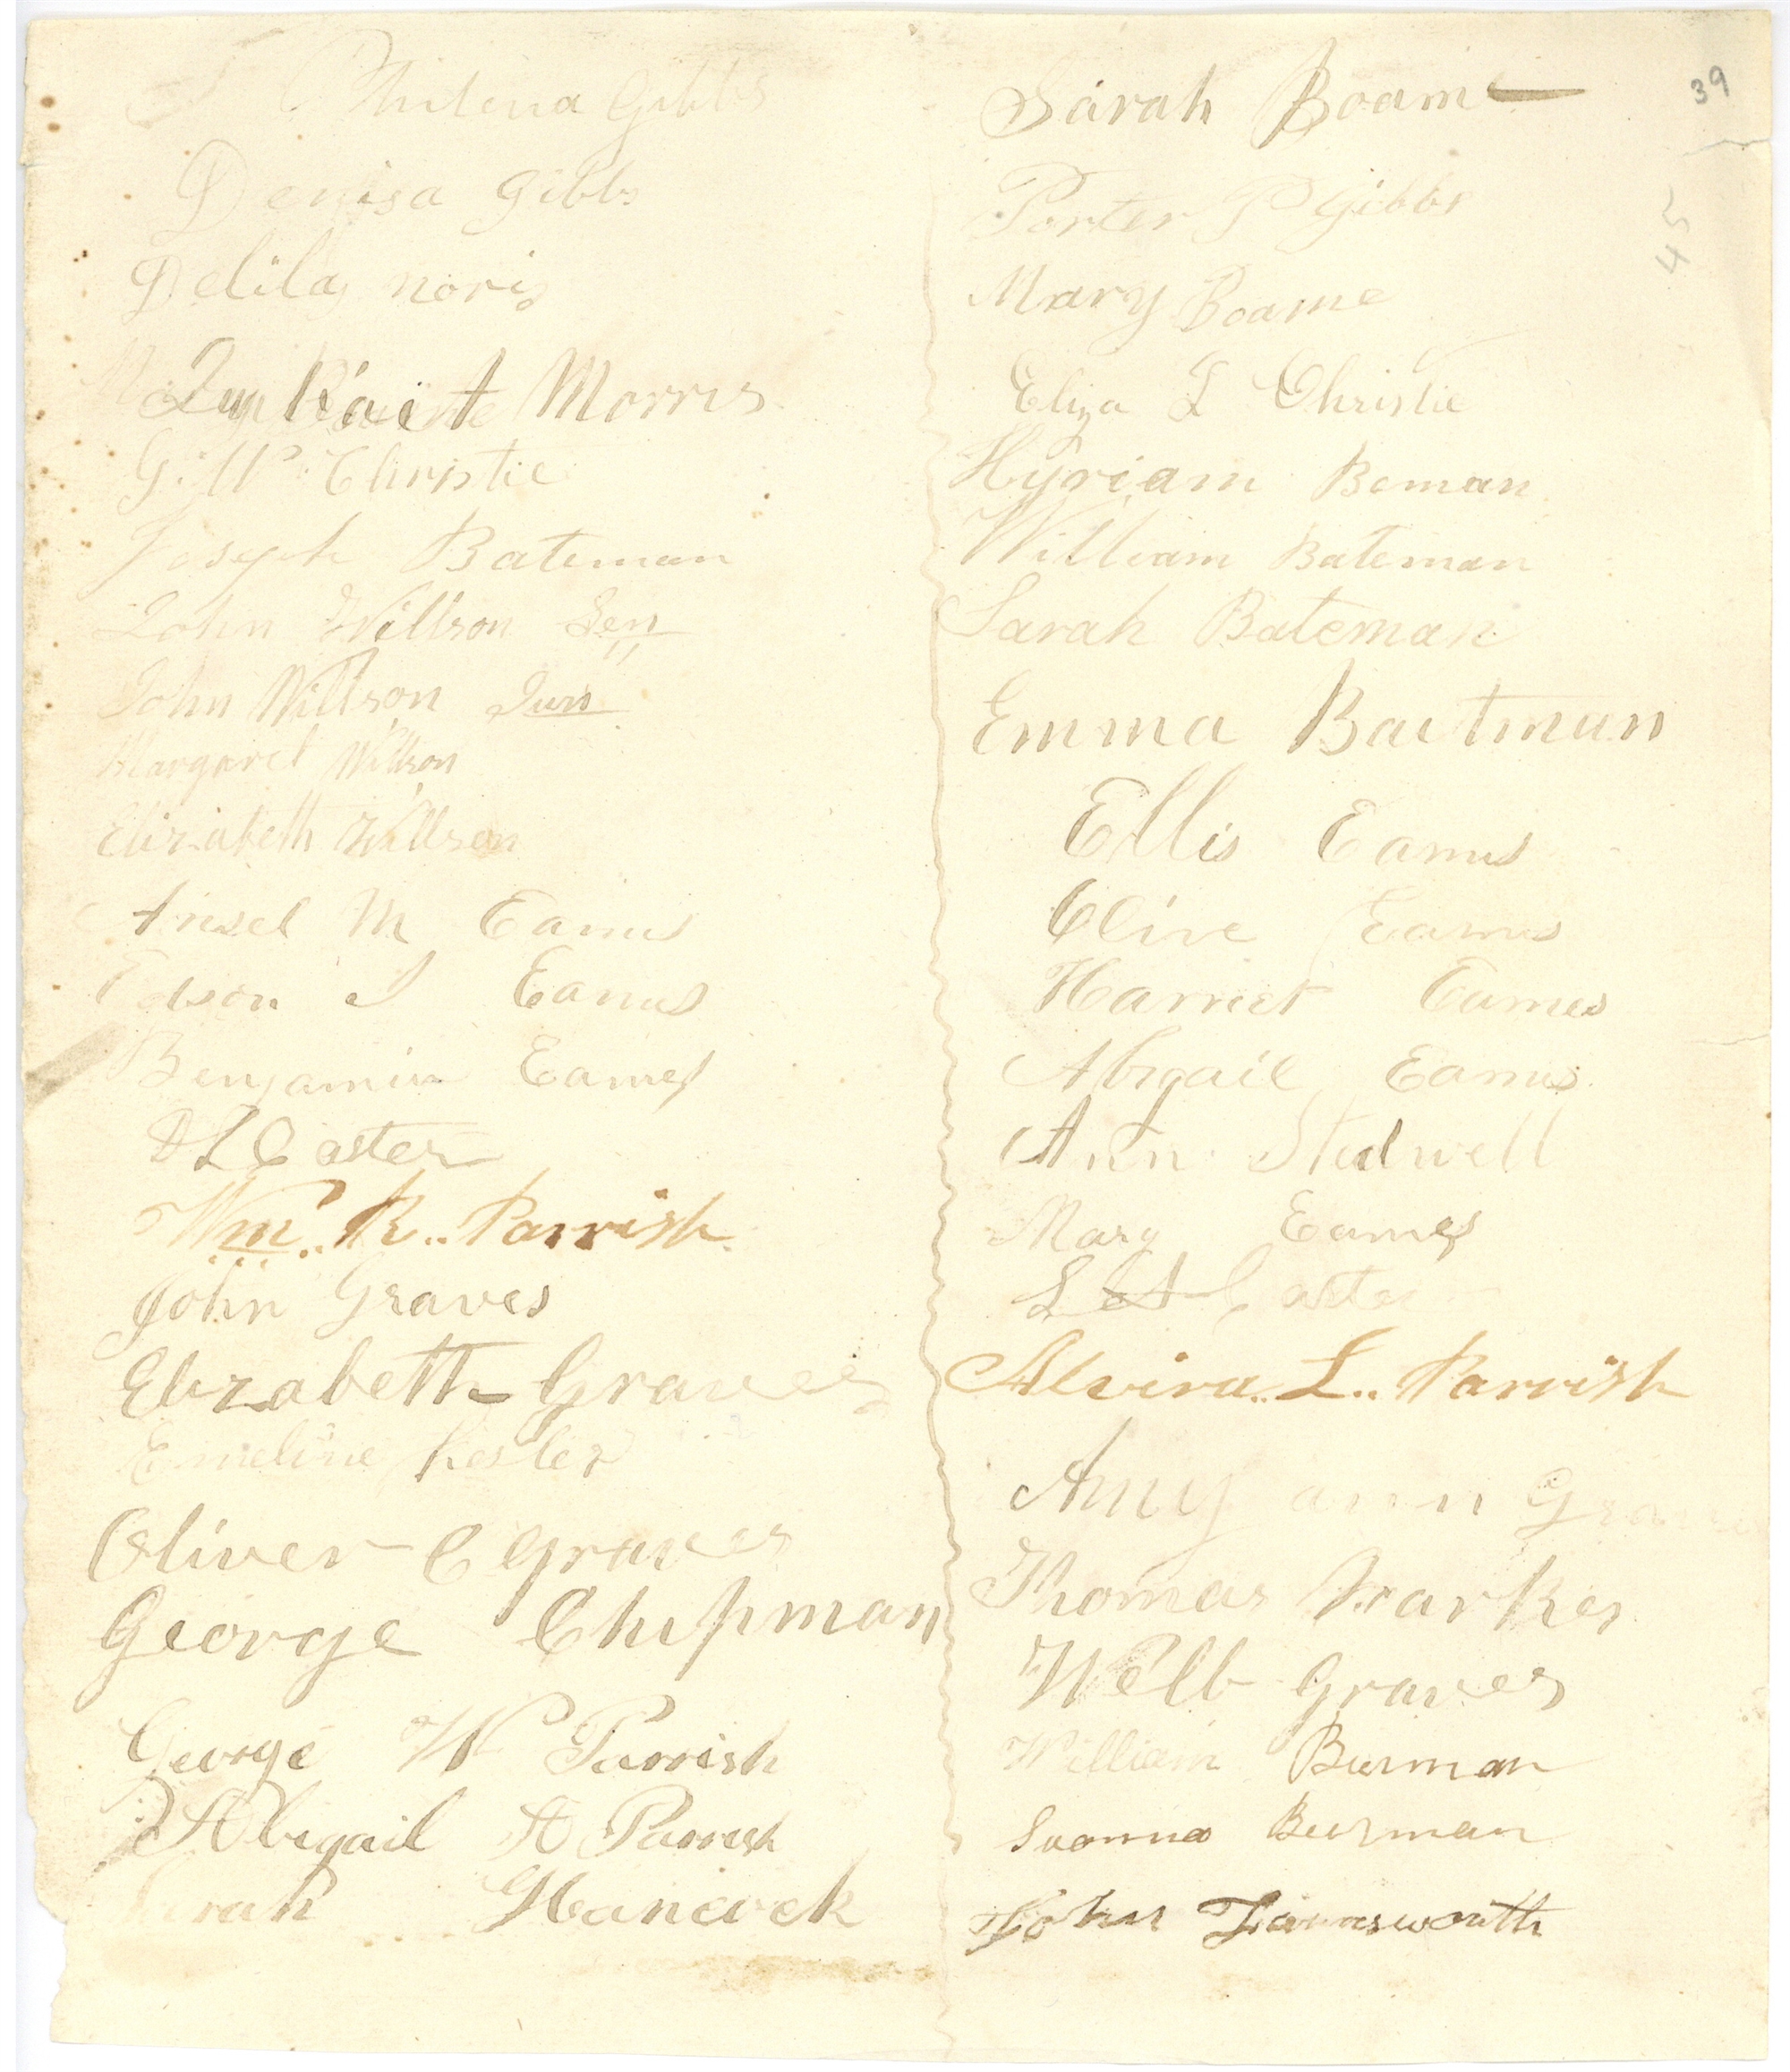 Philena Gibbs
Denisa Gibbs
Delila noris
Morris
G. W. Christie
Joseph Bateman
John Willson Sen
John Willson Jun
Margaret Willson
Elizabeth Willson
Ansel M Eames
Edson J Eames
Benjamin Eames
D L Caster
Wm. R.. Parrish.
John Graves
Elizabeth Graves
Emeline Kesler
Oliver C Graves
George Chipman
George W Parrish
Abigail A Parrish
Hancock
39
45
Sarah Boame
Porter P Gibbs
Mary Boame
Eliza L Christie
Hyriam Boman
William Bateman
Sarah Bateman
Emma Baitman
Ellis Eames
Olive Eames
Harriet Eames
Abigail Eames
Ann Stedwell
Mary Eames
Caster
Alvira.. L.. Parrish
Amy ann Graves
Thomas Parker
Welb Graves
William Burman
Burman
John Farnsworth